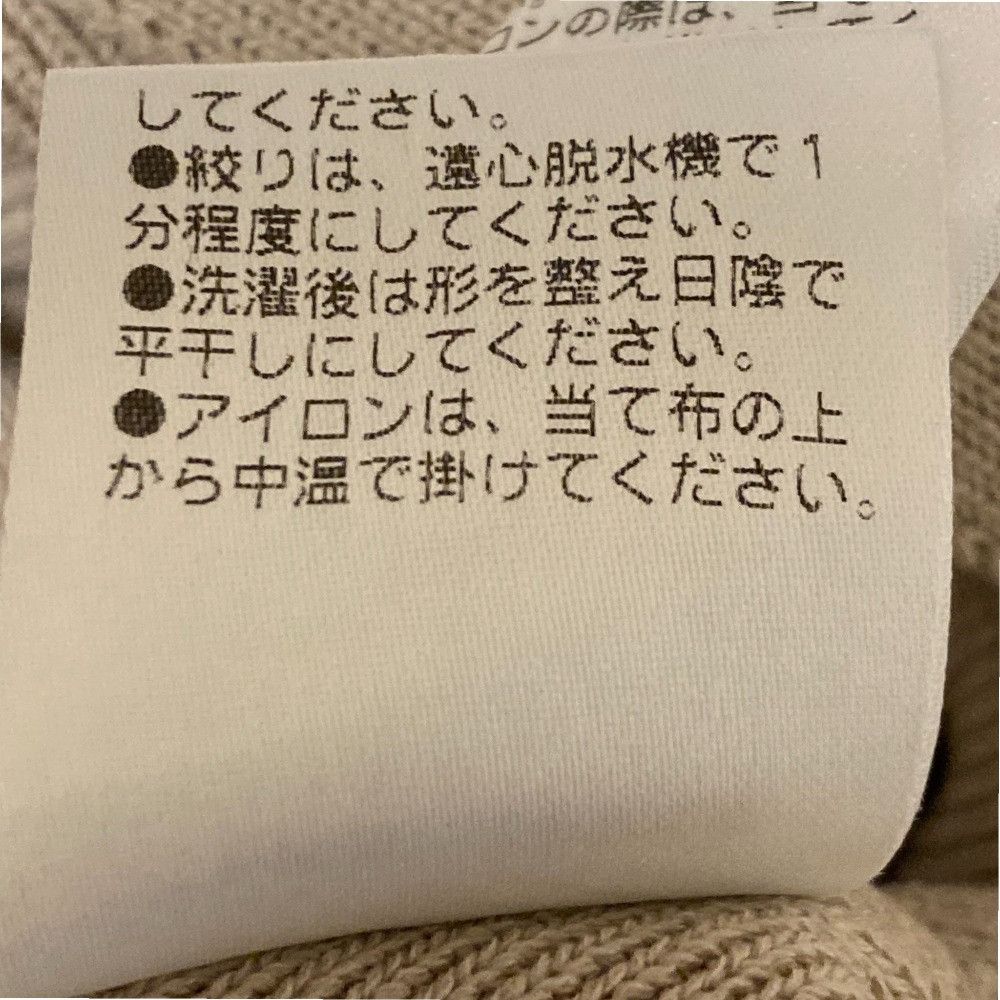 ンの際は、当
してください。
●絞りは、遠心脱水機で1
分程度にしてください。
●洗濯後は形を整え日陰で
平干しにしてください。
●アイロンは、当て布の上
から中温で掛けてください。